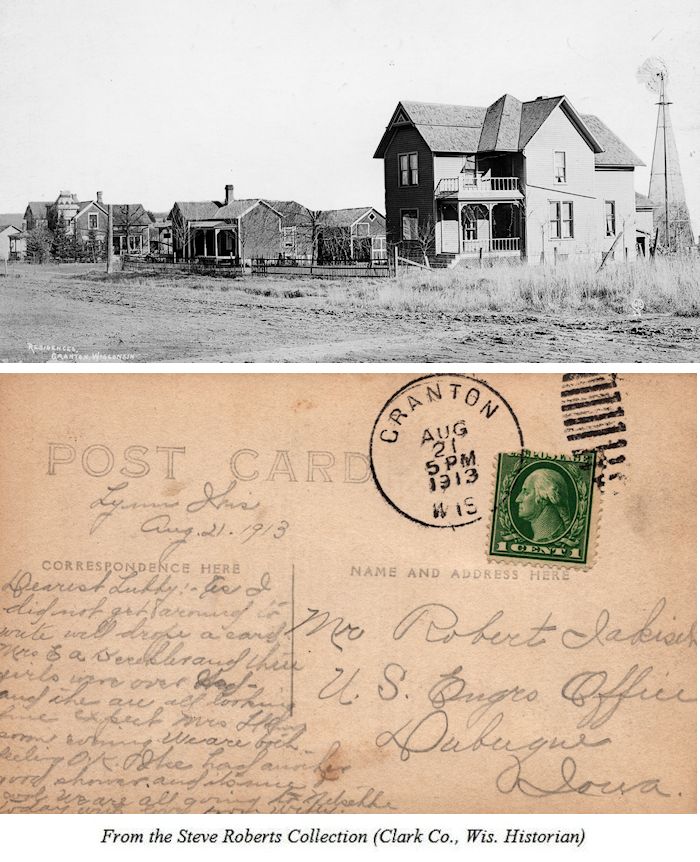 RESIDENCES,
GRANTON, WISCONSIN
GRANTON
AUG
21
5 PM
1913
WIS
POST CARD
1 CENT 1
Lynn Wis
Aug. 21. 1913
CORRESPONDENCE HERE
NAME AND ADDRESS HERE
Dearest Hubby:- As I
did not get around to
write will drope a card
Mrs E a and three
girls were over
and the are all looking
fine expect Mrs
soon coming We are both
feeling O.K. had another
good shower and its nice
cool we are all going to
today with love from
Mr Robert Jakisch
U. S. Engrs Office
Dubuque
Iowa.
From the Steve Roberts Collection (Clark Co., Wis. Historian)